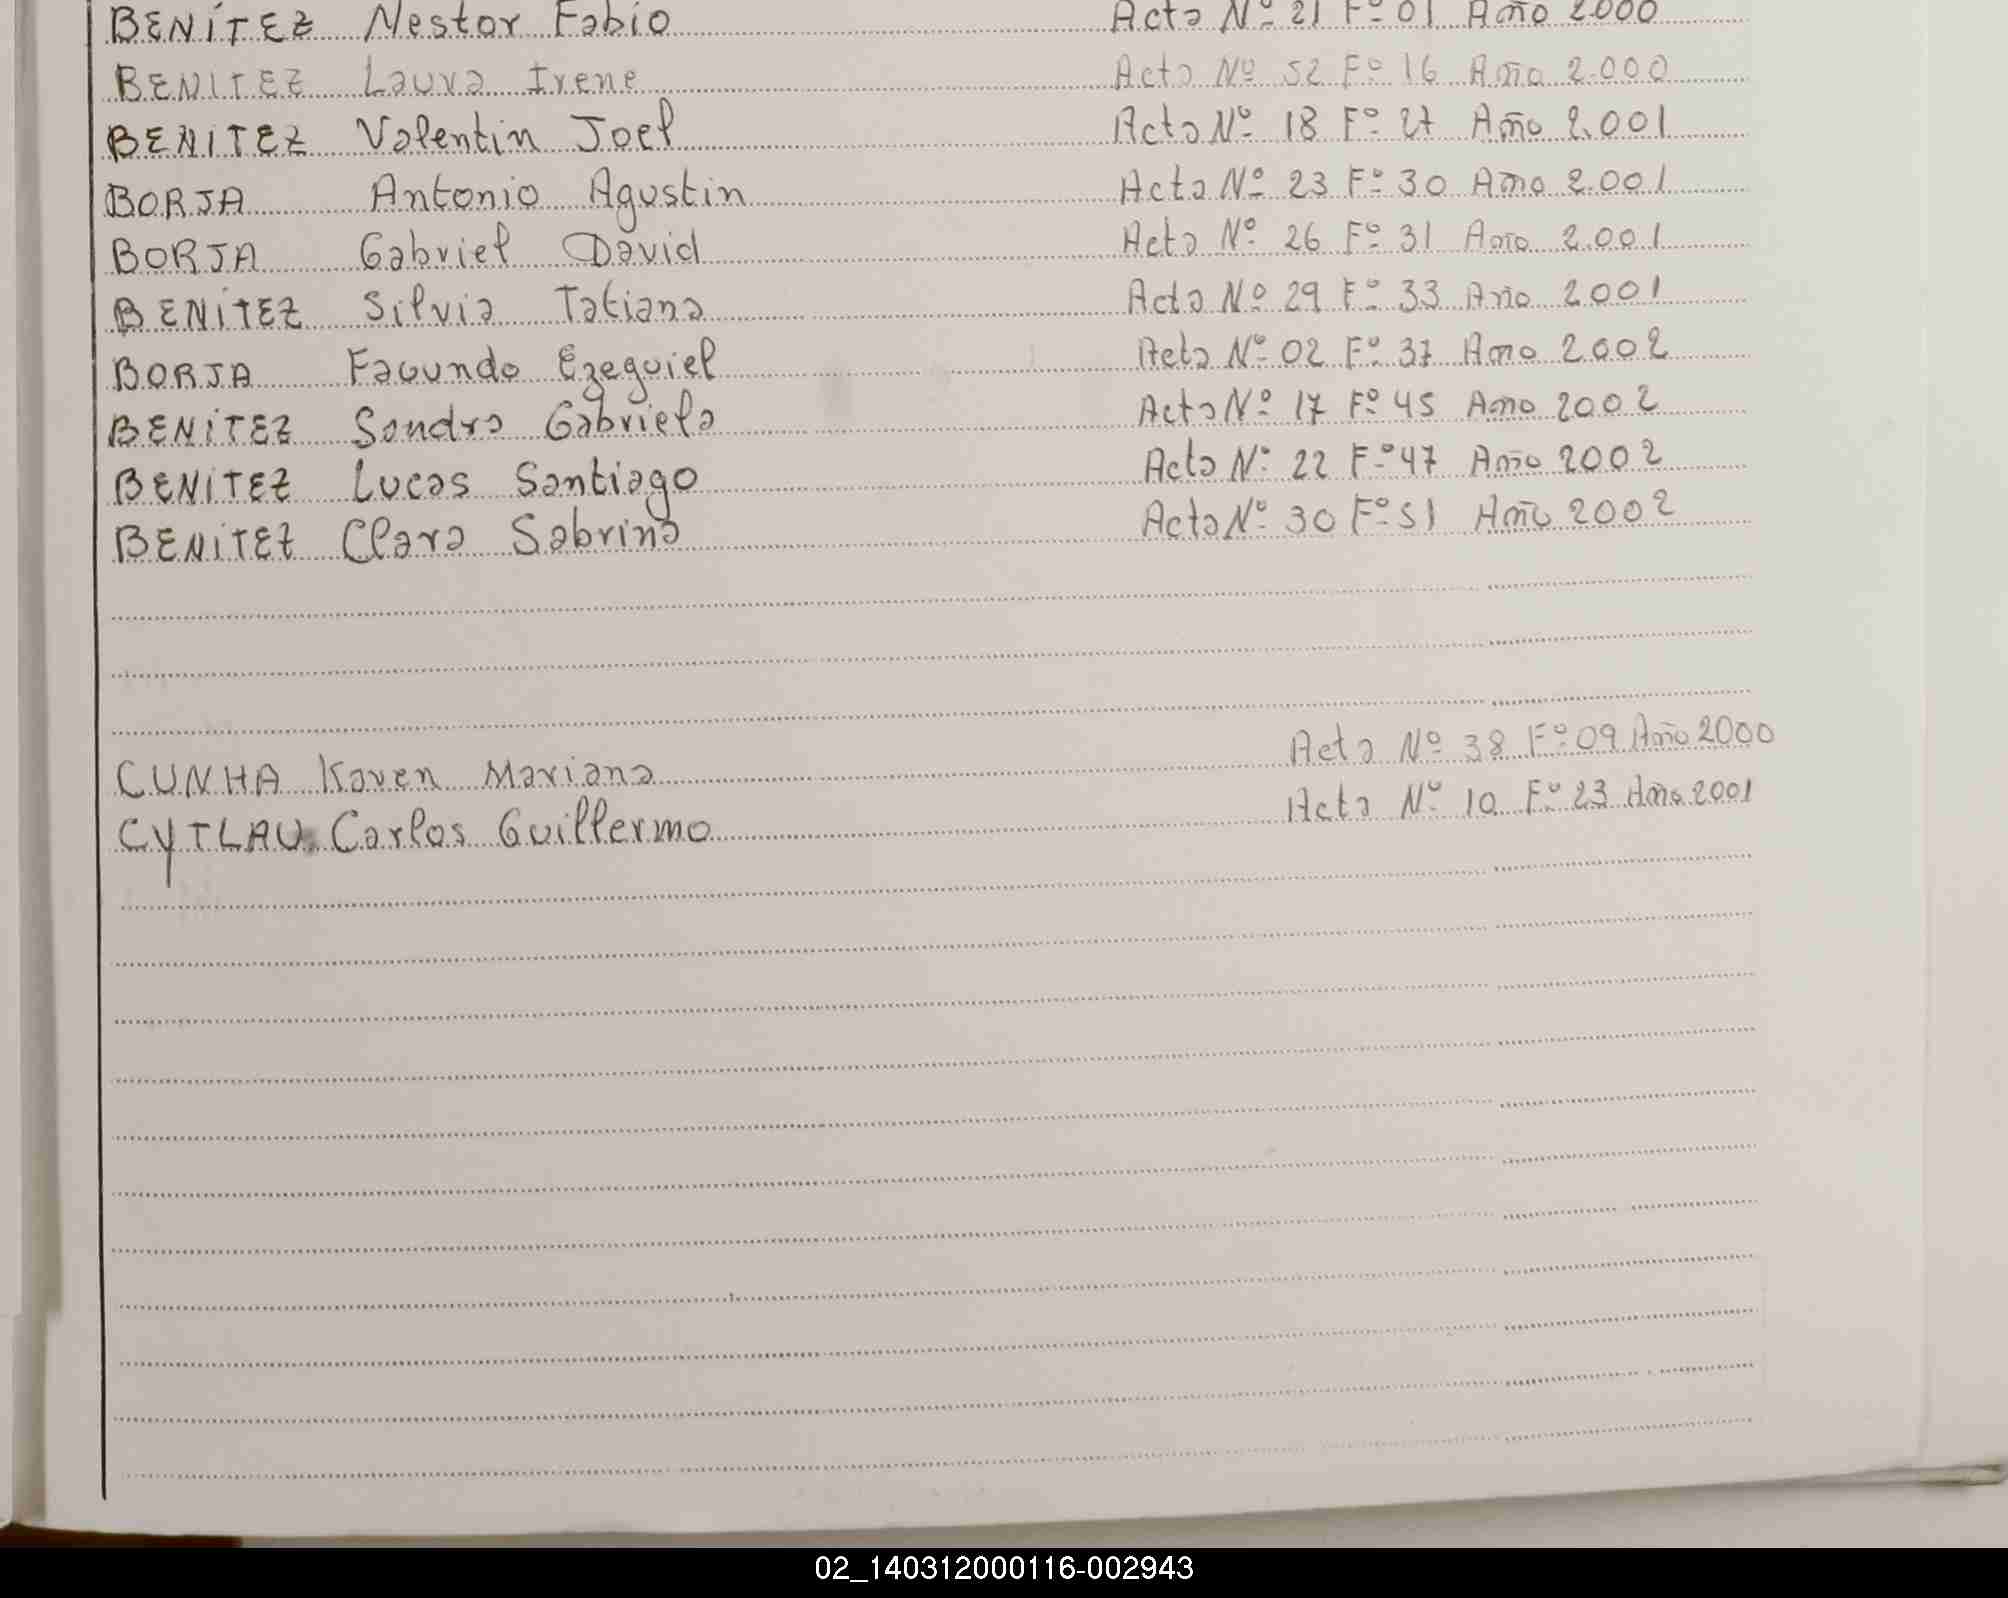 BENÍTEZ Nestor Fabio Acta Nº 21 Fº 01 Año 2000
BENITEZ Laura Irene Acta Nº 52 Fº 16 Año 2.000
BENITEZ Valentin Joel Acta Nº 18 Fº 27 Año 2.001
BORJA Antonio Agustin Acta Nº 23 Fº 30 Año 2.001
BORJA Gabriel David Acta Nº 26 Fº 31 Año 2.001
BENITEZ Silvia Tatiana Acta Nº 29 Fº 33 Año 2001
BORJA Facundo Ezequiel Acta Nº 02 Fº 37 Año 2002
BENITEZ Sandra Gabriela Acta Nº 17 Fº 45 Año 2002
BENITEZ Lucas Santiago Acta Nº 22 Fº 47 Año 2002
BENITEZ Clara Sabrina Acta Nº 30 Fº 51 Año 2002
CUNHA Karen Mariana Acta Nº 38 Fº 09 Año 2000
CYTLAU Carlos Guillermo Acta Nº 10 Fº 23 Año 2001
02_140312000116-002943